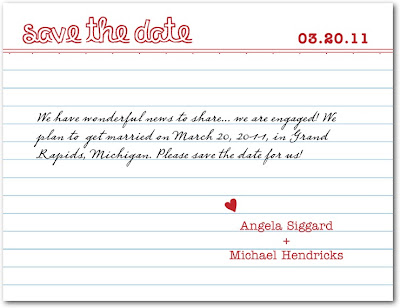 save the date
03.20.11
We have wonderful news to share... we are engaged! We
plan to get married on March 20, 2011, in Grand
Rapids, Michigan. Please save the date for us!
Angela Siggard
+
Michael Hendricks